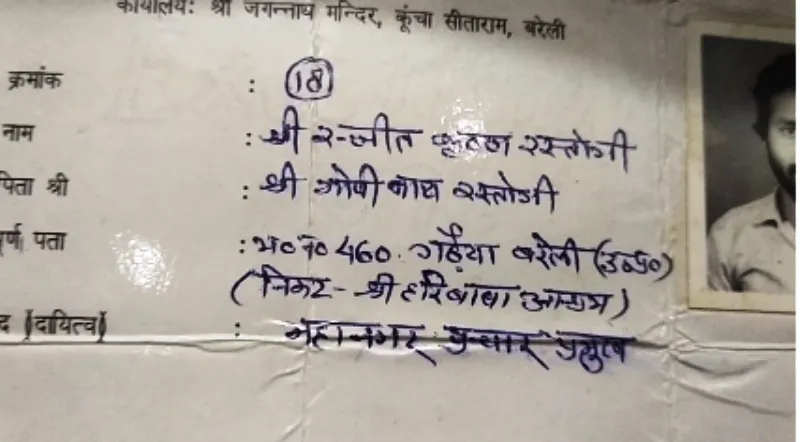 कार्यालय: श्री जगन्नाथ मन्दिर, कूंचा सीताराम, बरेली
क्रमांक : 18
नाम : श्री रन्जीत कृष्ण रस्तोगी
पिता श्री : श्री गोपी नाथ रस्तोगी
पूर्ण पता : म० न० 460. गढ़ैया बरेली (उ०प्र०)
(निकट - श्री हरि बाबा आश्रम)
द (दायित्व) : महानगर प्रचार प्रमुख